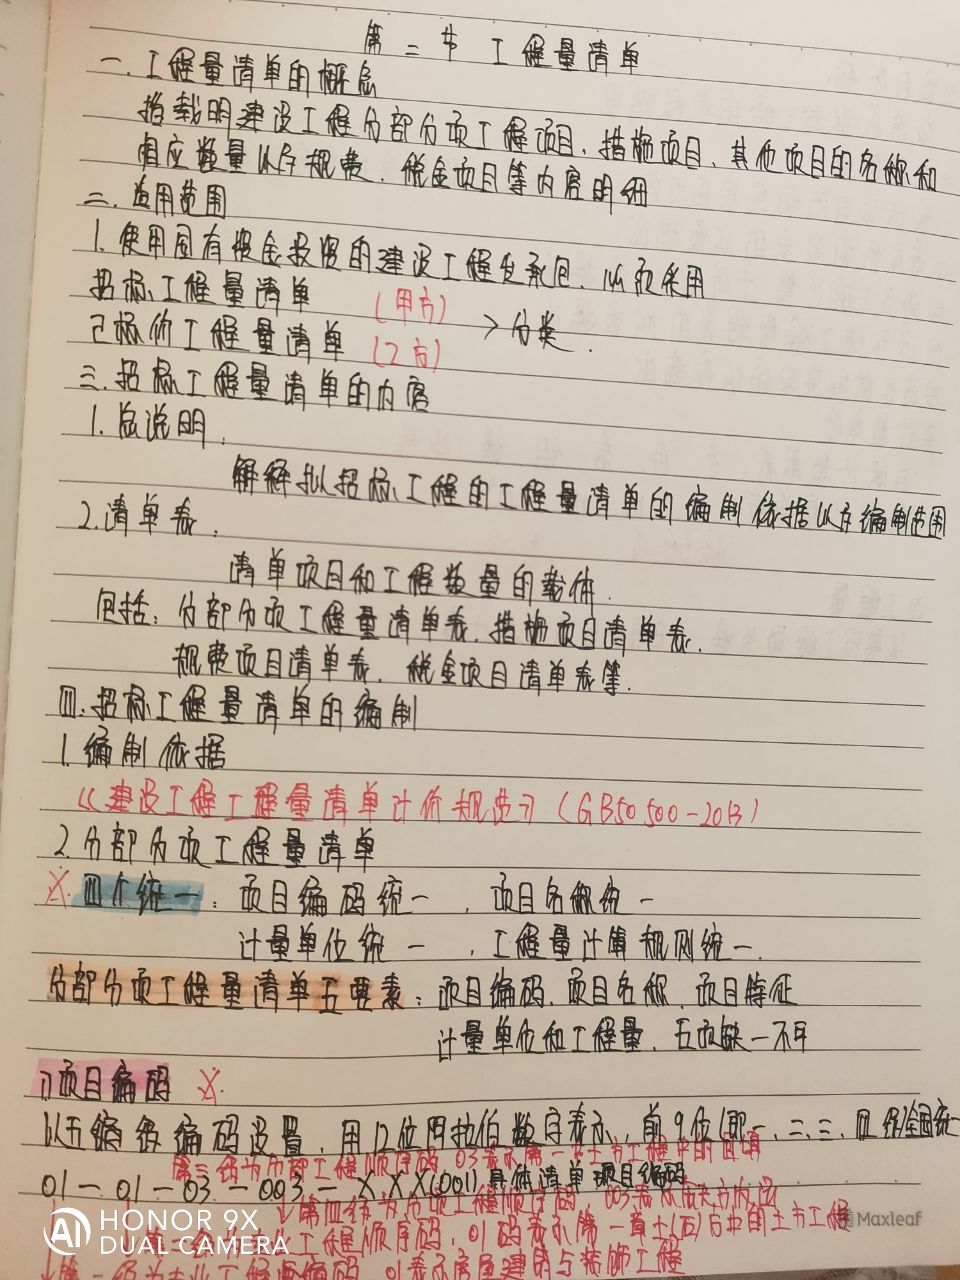 第二节 工程量清单
一.工程量清单的概念
指载明建设工程分部分项工程项目、措施项目、其他项目的名称和
相应数量以及规费、税金项目等内容明细
二.适用范围
1.使用国有资金投资的建设工程发承包、必须采用
招标工程量清单 (甲方)
已标价工程量清单 (乙方) >分类.
三.招标工程量清单的内容
1.总说明:
解释拟招标工程的工程量清单的编制依据以及编制范围
2.清单表:
清单项目和工程数量的载体.
包括:分部分项工程量清单表.措施项目清单表.
规费项目清单表.税金项目清单表等.
四.招标工程量清单的编制
1.编制依据
《建设工程工程量清单计价规范》(GB50500-2013)
2.分部分项工程量清单
四个统一:项目编码统一 ,项目名称统一
计量单位统一 ,工程量计算规则统一
分部分项工程量清单五要素:项目编码.项目名称.项目特征
计量单位和工程量、五项缺一不可
1)项目编码
以五级编码设置,用12位阿拉伯数字表示,前9位(即一、二、三、四级)全国统一
第三级为分部工程顺序码 03表示第一章土方工程中的回填
01-01-03-003-XXX(001)具体清单项目编码
第四级为分项工程顺序码 003表示
工程顺序码,01码表示第一章土(石)方中的土方工程
第一级为专业工程 编码 01表示房屋建筑与装饰工程
Maxleaf
AI HONOR 9X
DUAL CAMERA